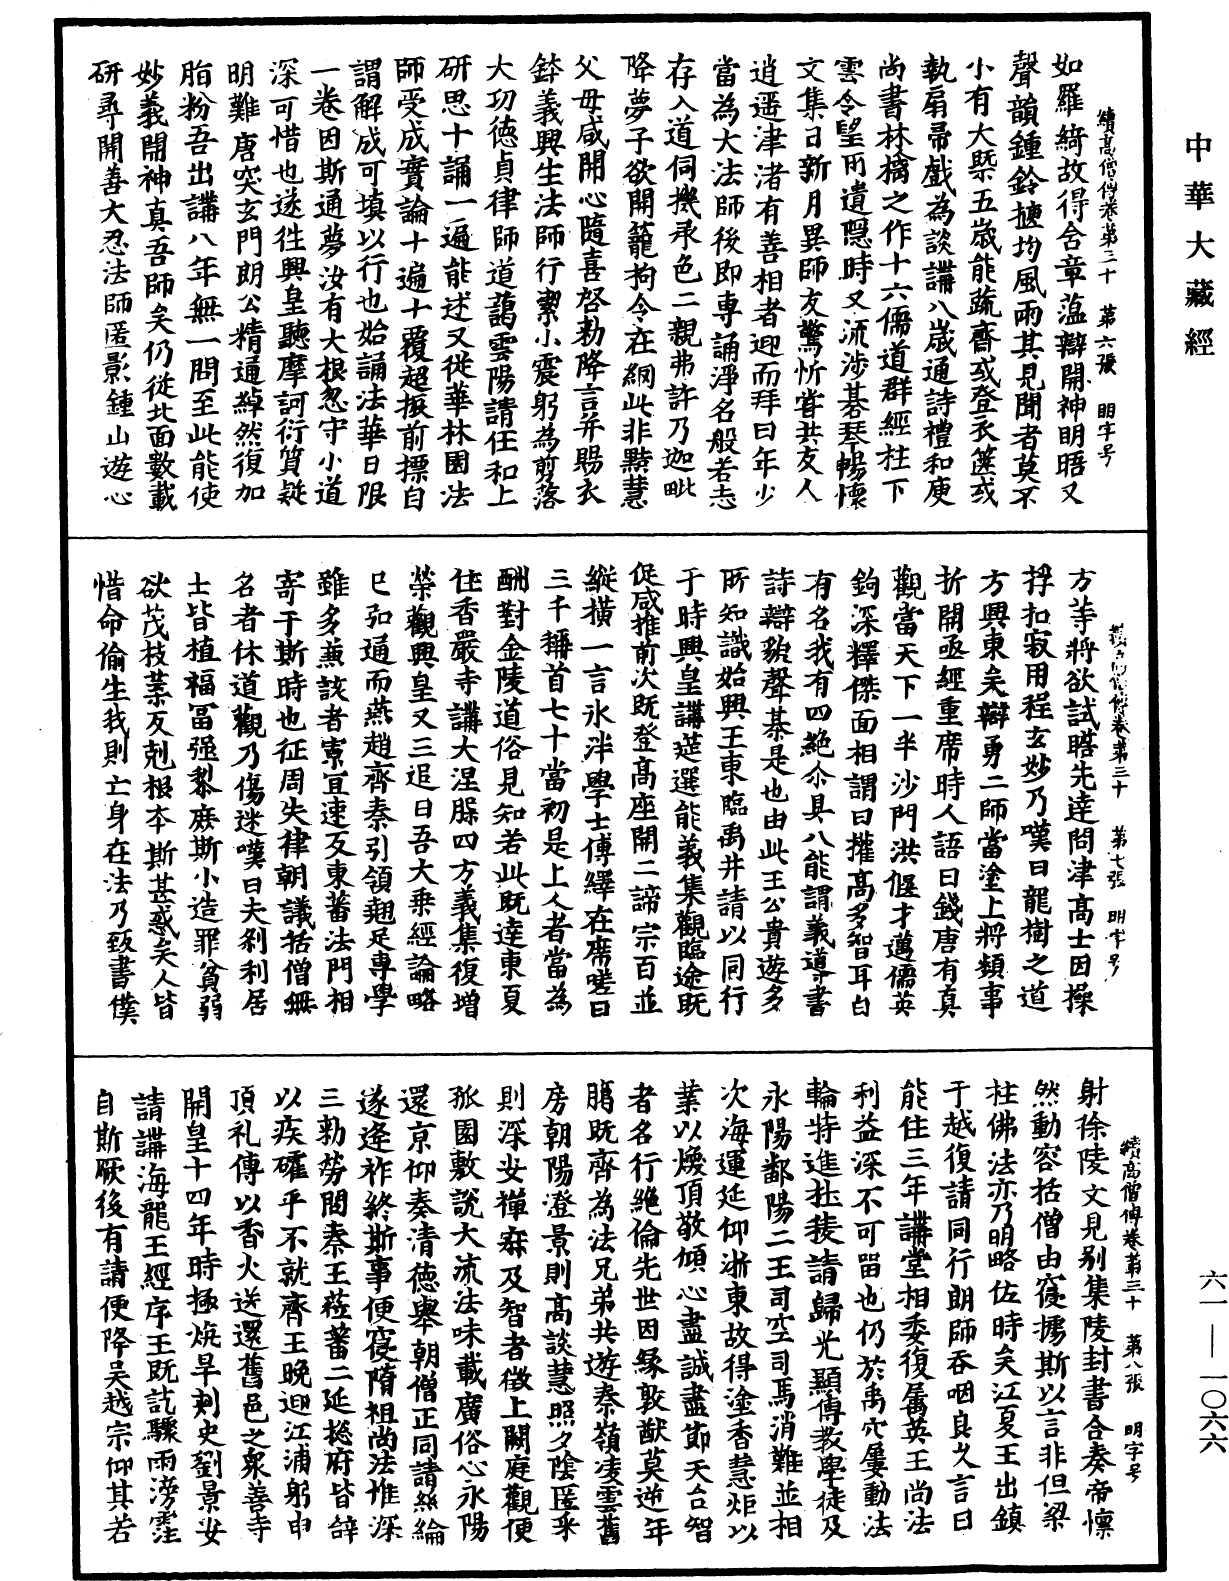 中華大藏經
續高僧傳卷第三十　第六張　明字号
如羅綺故得含章蕴辯開神明晤又
聲韻鍾鈴搋均風雨其見聞者莫不
小有大旣五歲能蔬齋或登衣篋或
執扇帚戲為談講八歲通詩禮和庾
尚書林檎之作十六儒道群經柱下
雲令望雨遺隱時又流涉碁琴暢懷
文集日新月異師友驚忻嘗共友人
逍遥津渚有善相者迎而拜曰年少
當為大法師後即專誦淨名般若志
存入道伺機承色二親弗許乃迦毗
降夢子欲開籠拘令在網此非黠慧
父母咸開心隨喜啓勑降言并賜衣
鉢義興生法師行潔小震躬為剪落
大功德貞律師道藹雲陽請任和上
研思十誦一遍能述又從華林園法
師受成實論十遍十覆超振前摽自
謂解成可填以行也始誦法華日限
一卷因斯通夢汝有大根忽守小道
深可惜也遂徃興皇聽摩訶衍質疑
明難唐突玄門朗公精通綽然復加
脂粉吾出講八年無一問至此能使
妙義開神真吾師矣仍從北面數載
研尋開善大忍法師匿影鍾山遊心
第三十　第七張　明字号
方等將欲試瞻先達問津高士因操
桴扣寂用程玄妙乃嘆曰龍樹之道
方興東矣辯勇二師當塗上將頻事
折開亟經重席時人語曰錢唐有真
觀當天下一半沙門洪偃才邁儒英
鉤深釋傑面相謂曰權高多智耳白
有名我有四絶尒具八能謂義導書
詩辯貌聲棊是也由此王公貴遊多
所知識始興王東臨禹井請以同行
于時興皇講莚選能義集觀臨途既
促咸推前次既登高座開二諦宗百並
縱橫一言氷泮學士傅縡在席嗟曰
三千稱首七十當初是上人者當為
酬對金陵道俗見知若此既達東夏
住香嚴寺講大涅槃四方義集復增
榮觀興皇又三追曰吾大乗經論略
已弘通而燕趙齊秦引領翹足專學
雖多兼該者寡宜速反東蕃法門相
寄于斯時也征周失律朝議括僧無
名者休道觀乃傷迷嘆曰夫剎利居
士皆植福冨强黎庶斯小造罪貧弱
欲茂枝葉反剋根本斯甚惑矣人皆
惜命偷生我則亡身在法乃致書僕
續高僧傳卷第三十　第八張　明字号
射徐陵文見别集陵封書合奏帝懍
然動容括僧由寑據斯以言非但梁
柱佛法亦乃明略佐時矣江夏王出鎮
于越復請同行朗師吞咽良久言曰
能住三年講堂相委復屬英王尚法
利益深不可留也仍於禹穴屢動法
輪特進杜稜請歸光顯傳教學徒及
永陽鄱陽二王司空司馬消難並相
次海運延仰浙東故得塗香慧炬以
業以煥頂敬傾心盡誠盡節天台智
者名行絶倫先世因緣敦猷莫逆年
腊既齊為法兄弟共遊秦嶺凌雲舊
房朝陽澄景則高談慧照夕陰匿采
則深安禪寂及智者徵上闕庭觀便
孤園敷說大流法味載廣俗心永陽
還京仰奏清德舉朝僧正同請絲綸
遂逄祚終斯事便寑隋祖尚法惟深
三勑勞問秦王莅蕃二延捴府皆辝
以疾確乎不就齊王晚迎江浦躬申
頂礼傳以香火送還舊邑之衆善寺
開皇十四年時極炕旱刾史劉景安
請講海龍王經序王既訖驟雨滂霔
自斯厥後有請便降吳越宗仰其若
六一—一〇六六